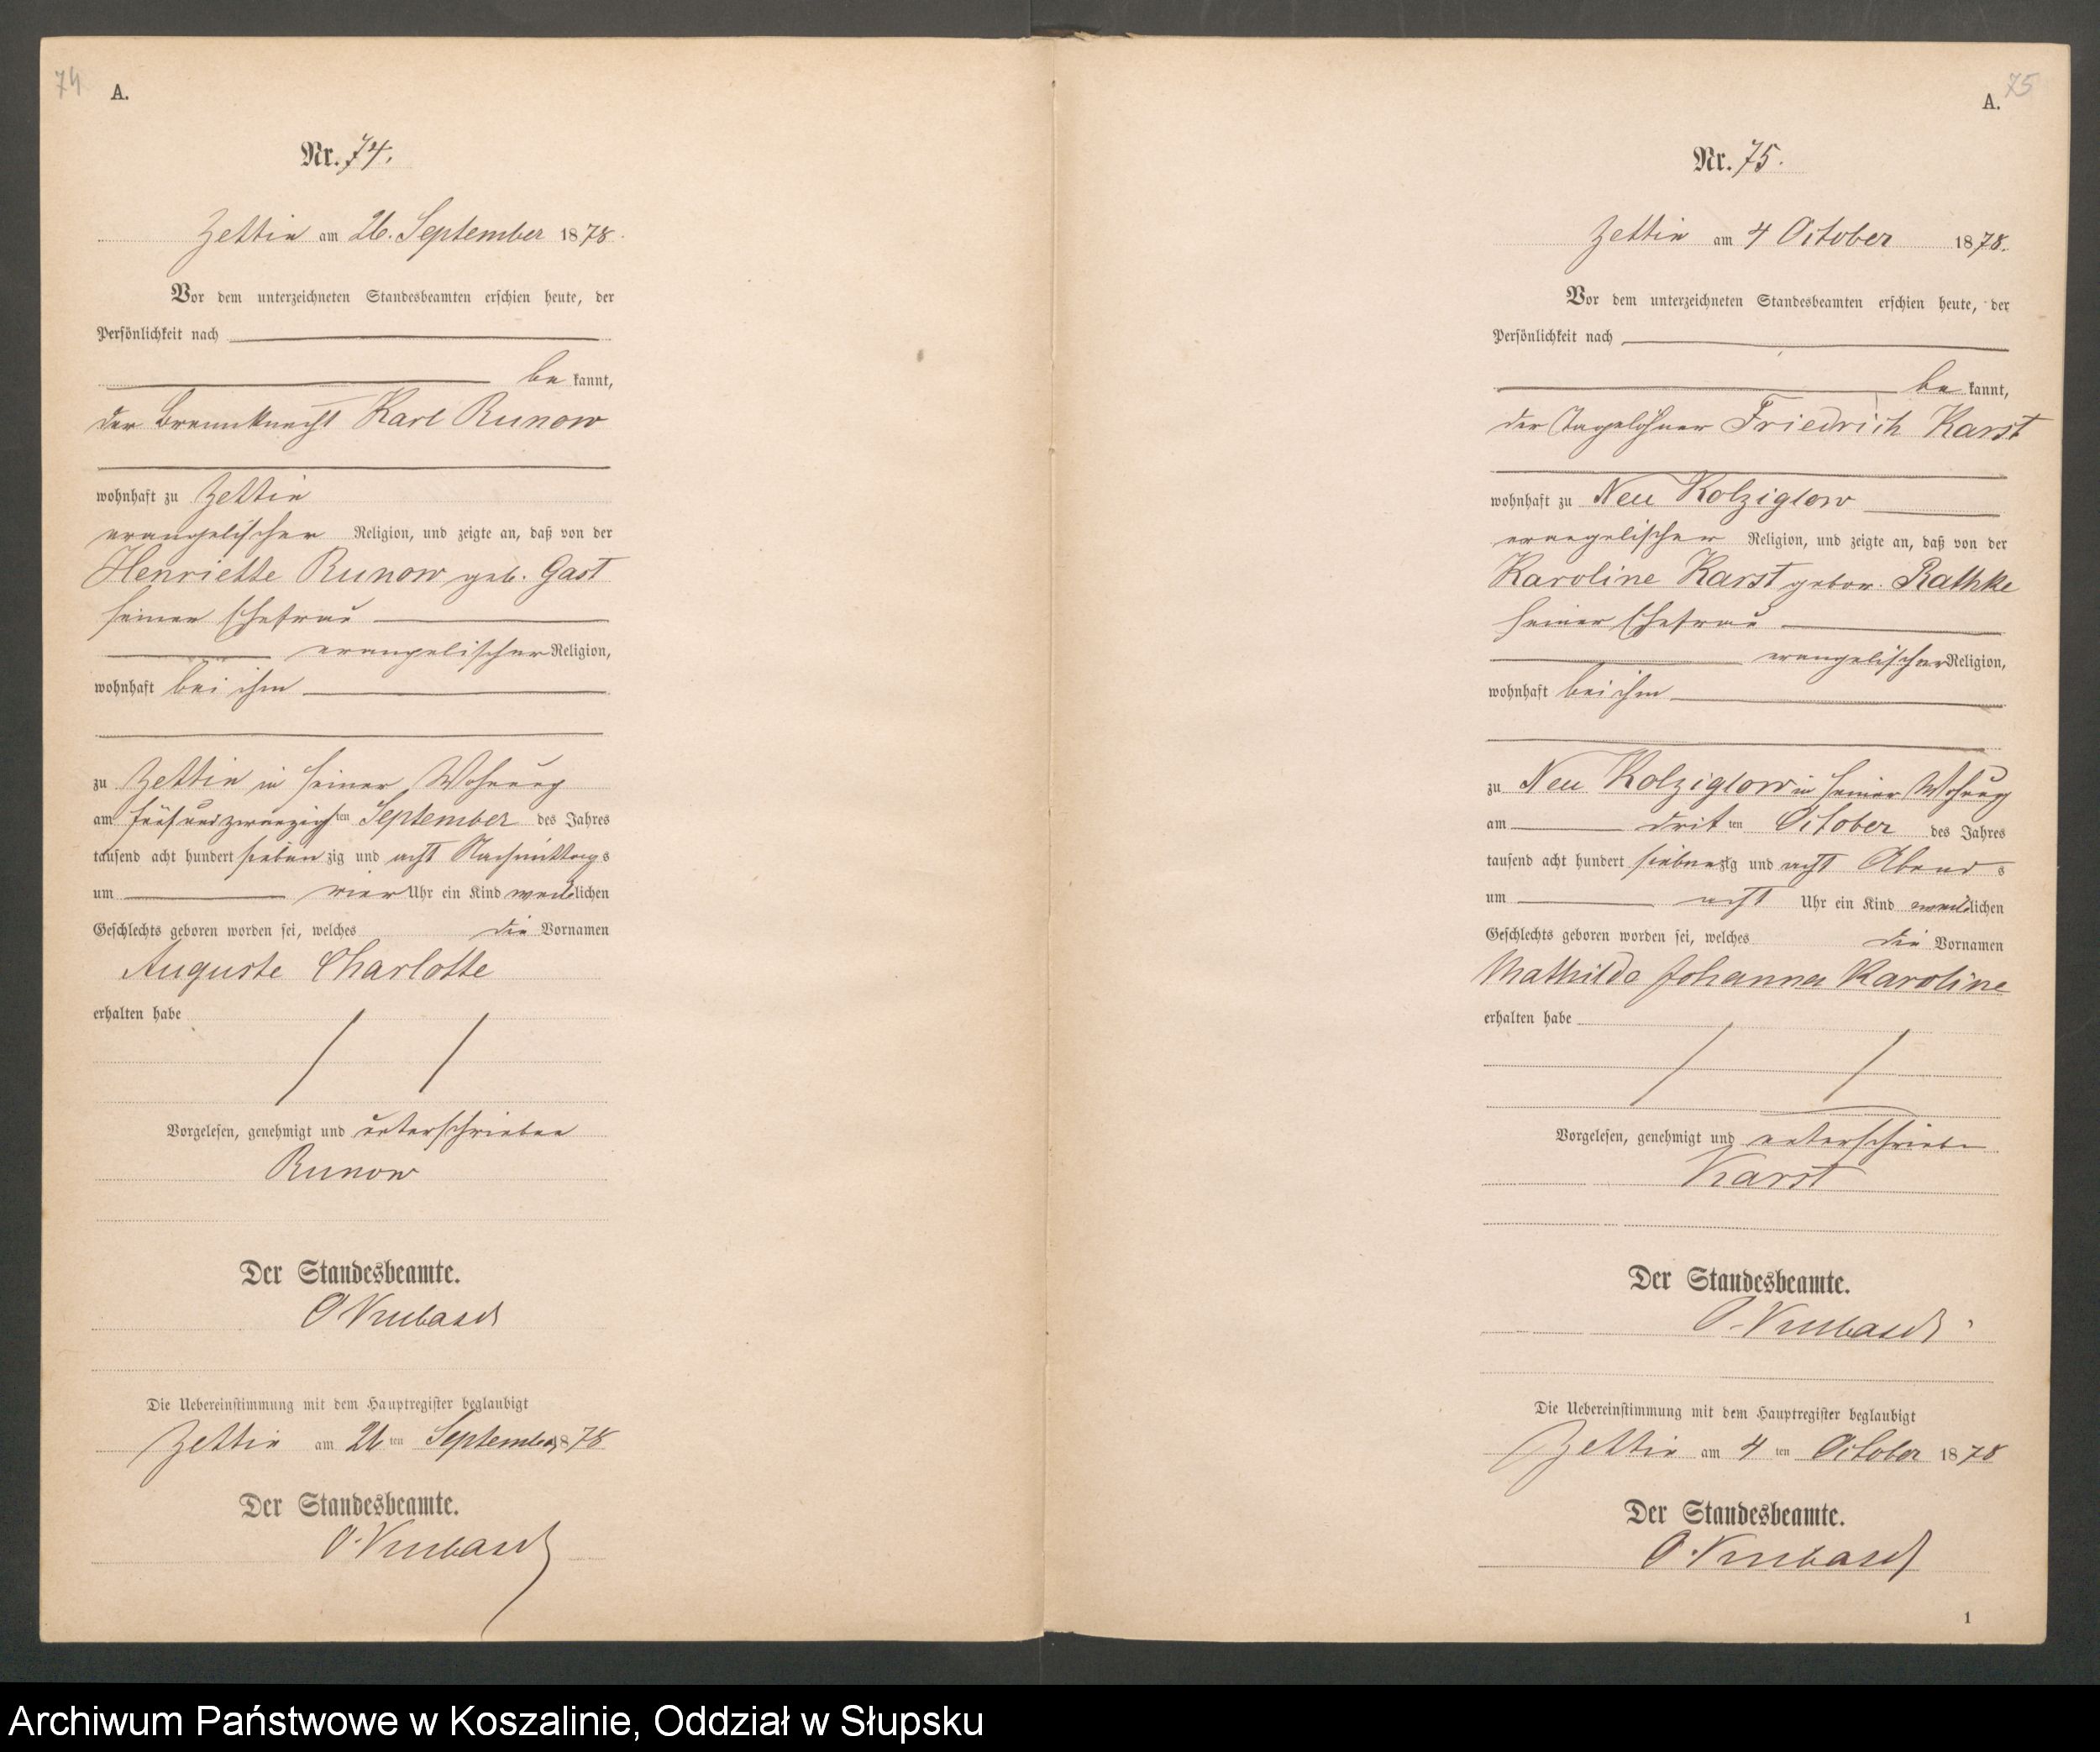 74
A.
Nr. 74.
Zettin am 26. September 1878.
Vor dem unterzeichneten Standesbeamten erschien heute, der
Persönlichkeit nach
be kannt,
der Brennknecht Karl Runow
wohnhaft zu Zettin
evangelischer Religion, und zeigte an, daß von der
Henriette Runow geb. Gast
seiner Ehefrau
evangelischer Religion,
wohnhaft bei ihm
zu Zettin in seiner Wohnung
am fünfundzwanzigsten September des Jahres
tausend acht hundert siebenzig und acht Nachmittags
um vier Uhr ein Kind weiblichen
Geschlechts geboren worden sei, welches die Vornamen
Auguste Charlotte
erhalten habe
Vorgelesen, genehmigt und unterschrieben
Runow
Der Standesbeamte.
Die Uebereinstimmung mit dem Hauptregister beglaubigt
Zettin am 26 ten September 1878
Der Standesbeamte.
75
A.
Nr. 75.
Zettin am 4 October 1878.
Vor dem unterzeichneten Standesbeamten erschien heute, der
Persönlichkeit nach
be kannt,
der Tagelöhner Friedrich Karst
wohnhaft zu Neu Kolziglow
evangelischer Religion, und zeigte an, daß von der
Karoline Karst gebor. Rathke
seiner Ehefrau
evangelischer Religion,
wohnhaft bei ihm
zu Neu Kolziglow in seiner Wohnung
am dritten October des Jahres
tausend acht hundert siebenzig und acht Abends
um acht Uhr ein Kind weiblichen
Geschlechts geboren worden sei, welches die Vornamen
Mathilde Johanna Karoline
erhalten habe
Vorgelesen, genehmigt und unterschrieben
Karst
Der Standesbeamte.
Die Uebereinstimmung mit dem Hauptregister beglaubigt
Zettin am 4 ten October 1878
Der Standesbeamte.
1
Archiwum Państwowe w Koszalinie, Oddział w Słupsku